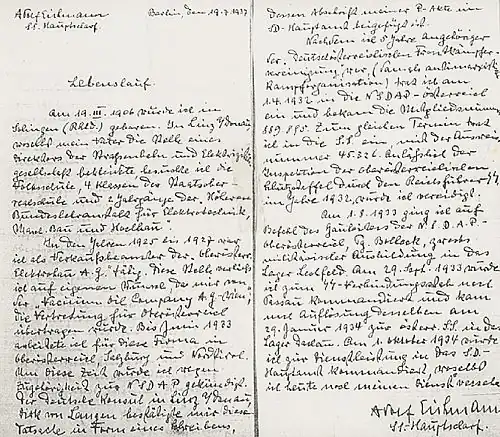 Adolf Eichmann
SS. Hauptscharf.
Berlin, den 19.7.1937
Lebenslauf.
Am 19. III. 1906 wurde ich in
Solingen (Rhld.) geboren. In Linz a/Donau,
woselbst mein Vater die Stelle eines
Direktors der Strassenbahn und Elektrizitäts-
gesellschaft bekleidete besuchte ich die
Volksschule, 4 Klassen der Staatsober-
realschule und 2 Jahrgänge der Höheren
Bundeslehranstalt für Elektrotechnik,
Masch. Bau und Hochbau.
In den Jahren 1925 bis 1927 war
ich als Verkaufsbeamter der "Oberösterr.
Elektrobau A.G." tätig. Diese Stelle verliess
ich auf eigenen Wunsch, da mir von
der "Vacuum Oil Company A.G. Wien,
die Vertretung für Oberösterreich
übertragen wurde. Bis Juni 1933
arbeitete ich für diese Firma in
Oberösterreich, Salzburg und Nordtirol.
Um diese Zeit wurde ich wegen
Zugehörigkeit zur NSDAP gekündigt.
Der deutsche Konsul in Linz a/Donau,
Dirk von Langen bestätigte mir diese
Tatsache in Form eines Schreibens,
dessen Abschrift meiner P-Akte im
SD-Hauptamt beigefügt ist.
Nachdem ich 5 Jahre Angehöriger
der Deutschösterreichischen Frontkämpfer-
vereinigung war, (damals antimarxist.
Kampforganisation) trat ich am
1.4.1932 in die NSDAP-Österreich
ein und bekam die Mitgliedsnummer
889.895. Zum gleichen Termin trat
ich in die SS. ein, mit der Ausweis-
nummer 45.326. Anlässlich der
Inspektion der oberösterreichischen
Schutzstaffel durch den Reichsführer SS
im Jahre 1932, wurde ich vereidigt.
Am 1.8.1933 ging ich auf
Befehl des Gauleiters der NSDAP-
Oberösterreich, Pg. Bolleck, zwecks
militärischer Ausbildung in das
Lager Lechfeld. Am 29. Sept. 1933 wurde
ich zum SS-Verbindungsstab nach
Passau kommandiert und kam
nach Auflösung desselben am
29. Januar 1934 zur österr. SS. in das
Lager Dachau. Am 1. Oktober 1934 wurde
ich zur Dienstleistung in das SD-
Hauptamt kommandiert, woselbst
ich heute noch meinen Dienst versehe.
Adolf Eichmann
SS. Hauptscharf.